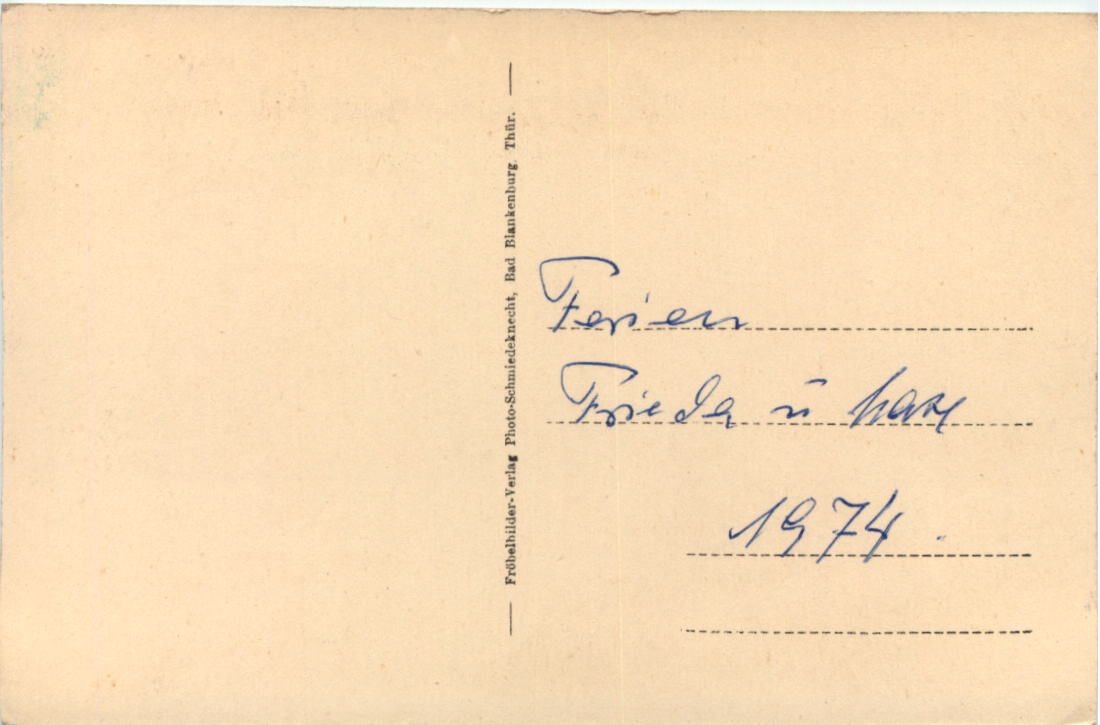 Fröbelbilder-Verlag Photo-Schmiedeknecht, Bad Blankenburg, Thür.
Ferien
Frieda u
1974